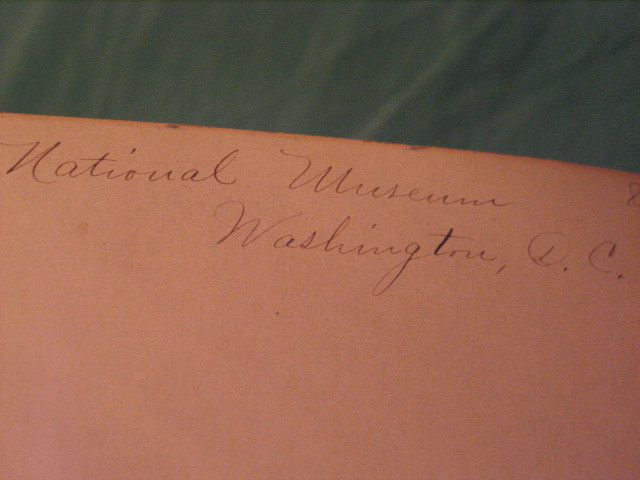 National Museum
Washington, D. C.